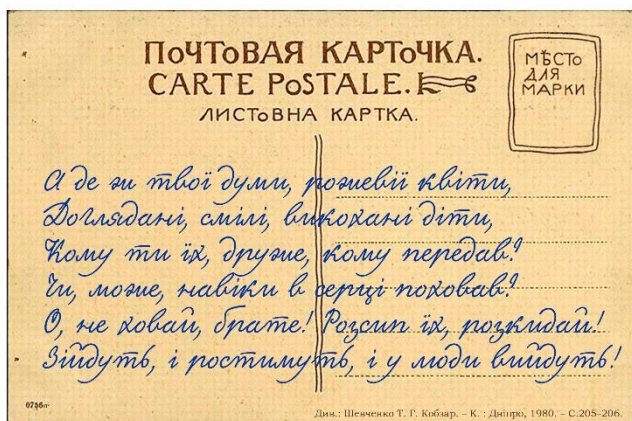 ПОЧТОВАЯ КАРТОЧКА.
CARTE POSTALE.
ЛИСТОВНА КАРТКА.
МѢСТО
ДЛЯ
МАРКИ
А де ж твої думи, рожевії квіти,
Доглядані, смілі, викохані діти,
Кому ти їх, друже, кому передав?
Чи, може, навіки в серці поховав?
О, не ховай, брате! Розсип їх, розкидай!
Зійдуть, і ростимуть, і у люди вийдуть!
Див.: Шевченко Т. Г. Кобзар. – К. : Дніпро, 1980. – С.205–206.